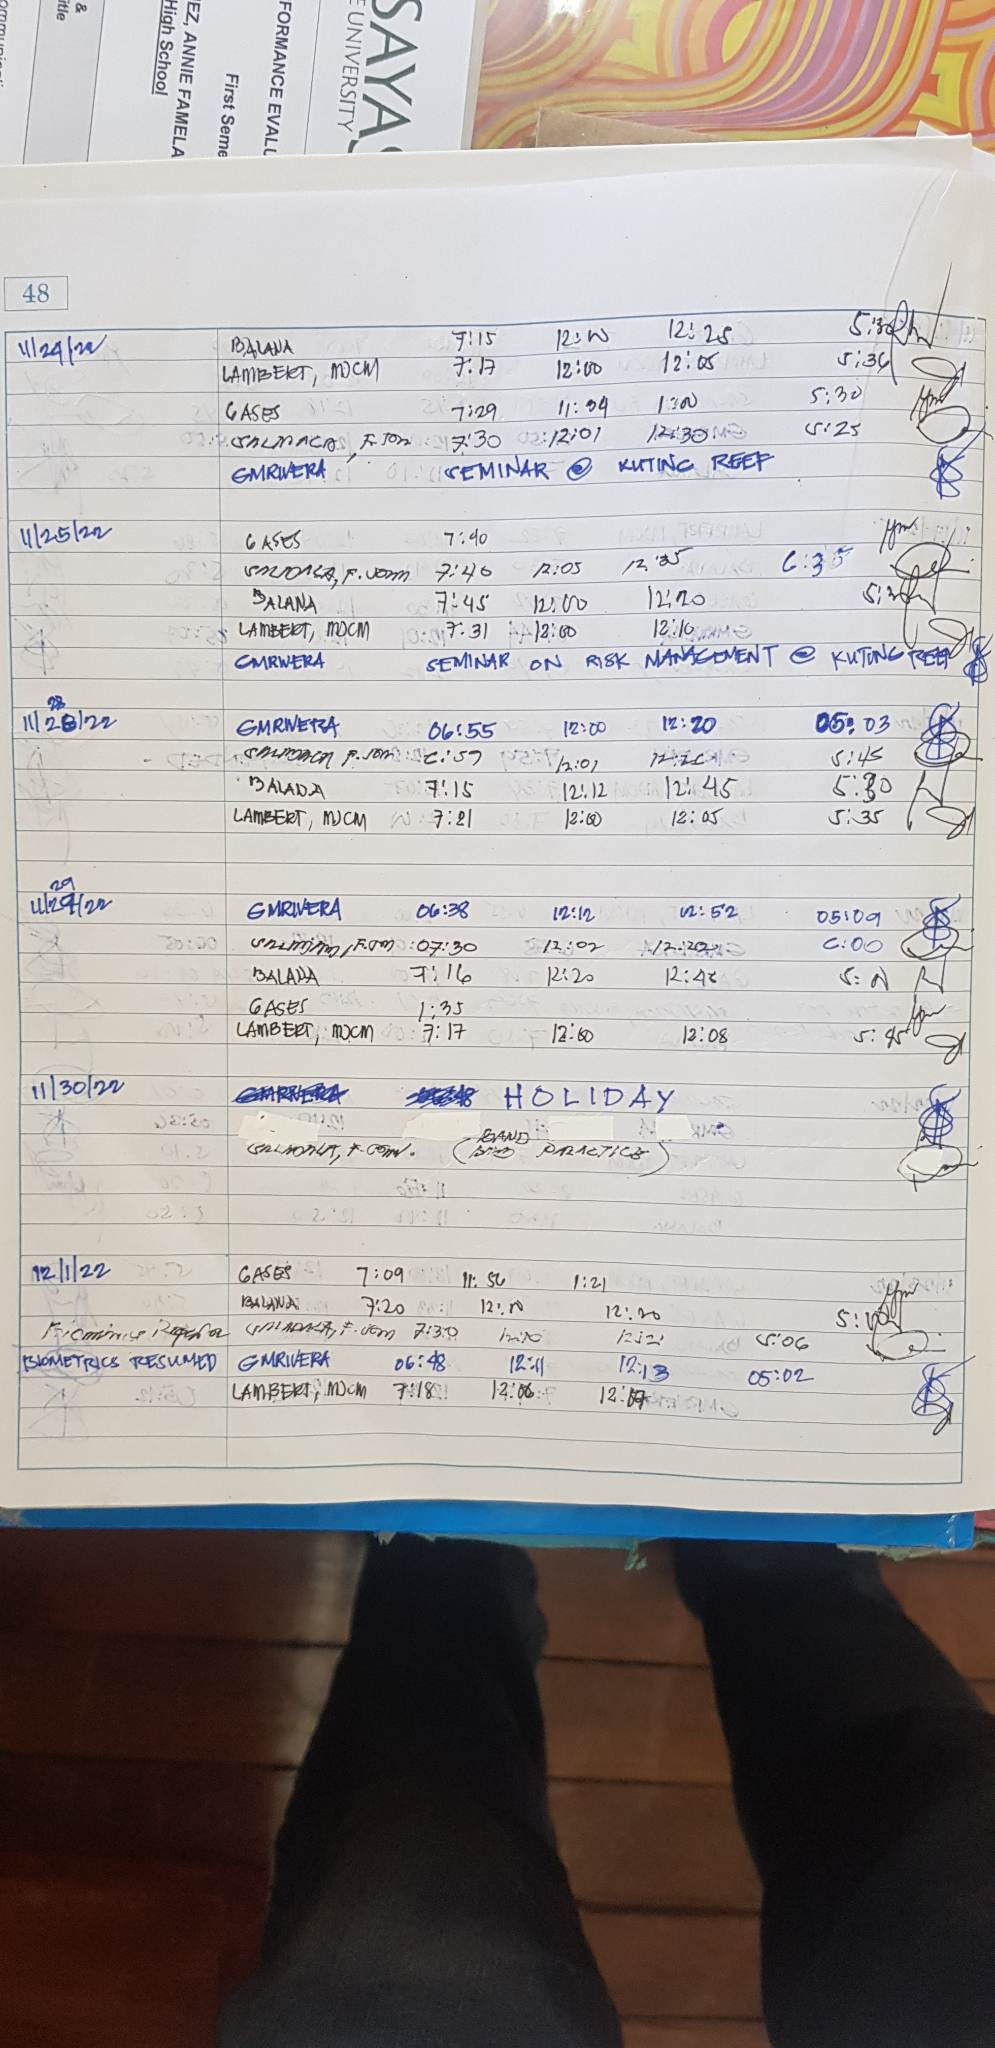 SAYAS
E UNIVERSITY
FORMANCE EVALU
First Seme
EZ, ANNIE FAMELA
High School
&
itle
48
11/24/22 BALANA 7:15 12:25
LAMBERT, MJCM 7:17 12:00 12:05 5:36
GASES 7:29 11:54 5:30
7:30 12:01 12:30 5:25
GMRIVERA SEMINAR @ KUTING REEF
11/25/22 GASES 7:40
7:40 12:05 12:35 6:35
BALANA 7:45 12:00 12:20
LAMBERT, MJCM 7:31 12:00 12:10
GMRIVERA SEMINAR ON RISK MANAGEMENT @ KUTING REEF
28
11/28/22 GMRIVERA 06:55 12:00 12:20 05:03
6:57 12:01 5:45
BALANA 7:15 12:12 12:45 5:30
LAMBERT, MJCM 7:21 12:00 12:05 5:35
29
11/29/22 GMRIVERA 06:38 12:12 12:52 05:09
07:30 12:02 6:00
BALANA 7:16 12:20
GASES 1:35
LAMBERT, MJCM 7:17 12:00 12:08 5:45
11/30/22 GMRIVERA HOLIDAY
(BAND PRACTICE)
12/1/22 GASES 7:09 11:56 1:21
BALANA 7:20 12:20
7:30 12:21 5:06
BIOMETRICS RESUMED GMRIVERA 06:48 12:11 12:13 05:02
LAMBERT, MJCM 7:18 12:06 12:07